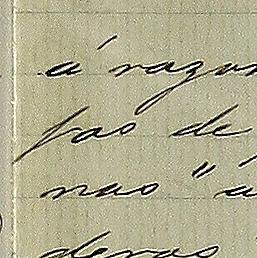 á razon
pas de
nas "á
deras